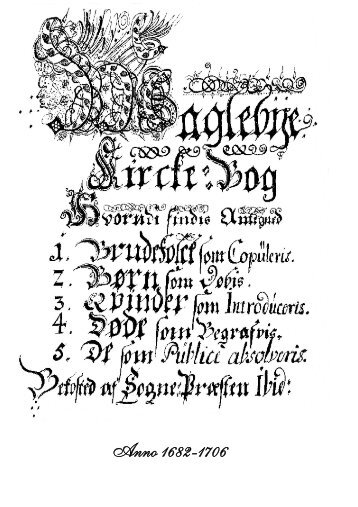 Maglebÿe
Kircke-Bog
Hvorudi findis Antegned
1. Brudefolck som Copüleris.
2. Børn som Døbis.
3. Kvinder som Introdúceris.
4. Døde som Begrafvis.
5. De som Públicè absolveris.
Bekosted af Sogne-Præsten Ibid:
Anno 1682-1706